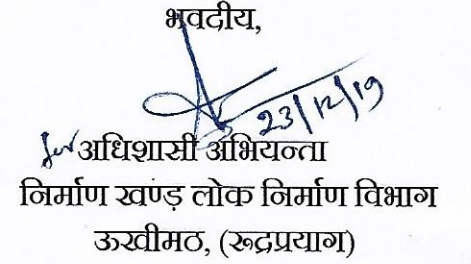 भवदीय,
23/12/19
for अधिशासी अभियन्ता
निर्माण खण्ड़ लोक निर्माण विभाग
ऊखीमठ, (रूद्रप्रयाग)